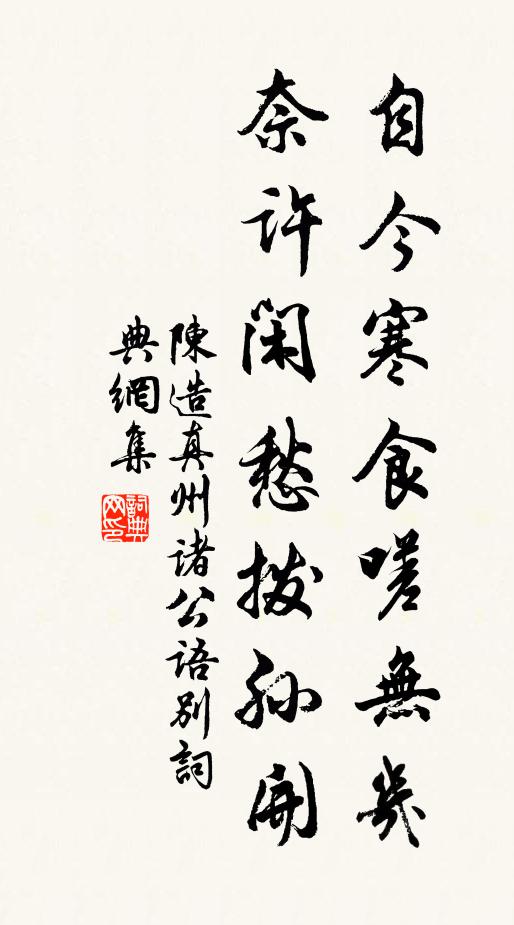 自今寒食嗟無幾
奈許閑愁撥開
陳造真州諸公語別詞
典網集
詞典
网印